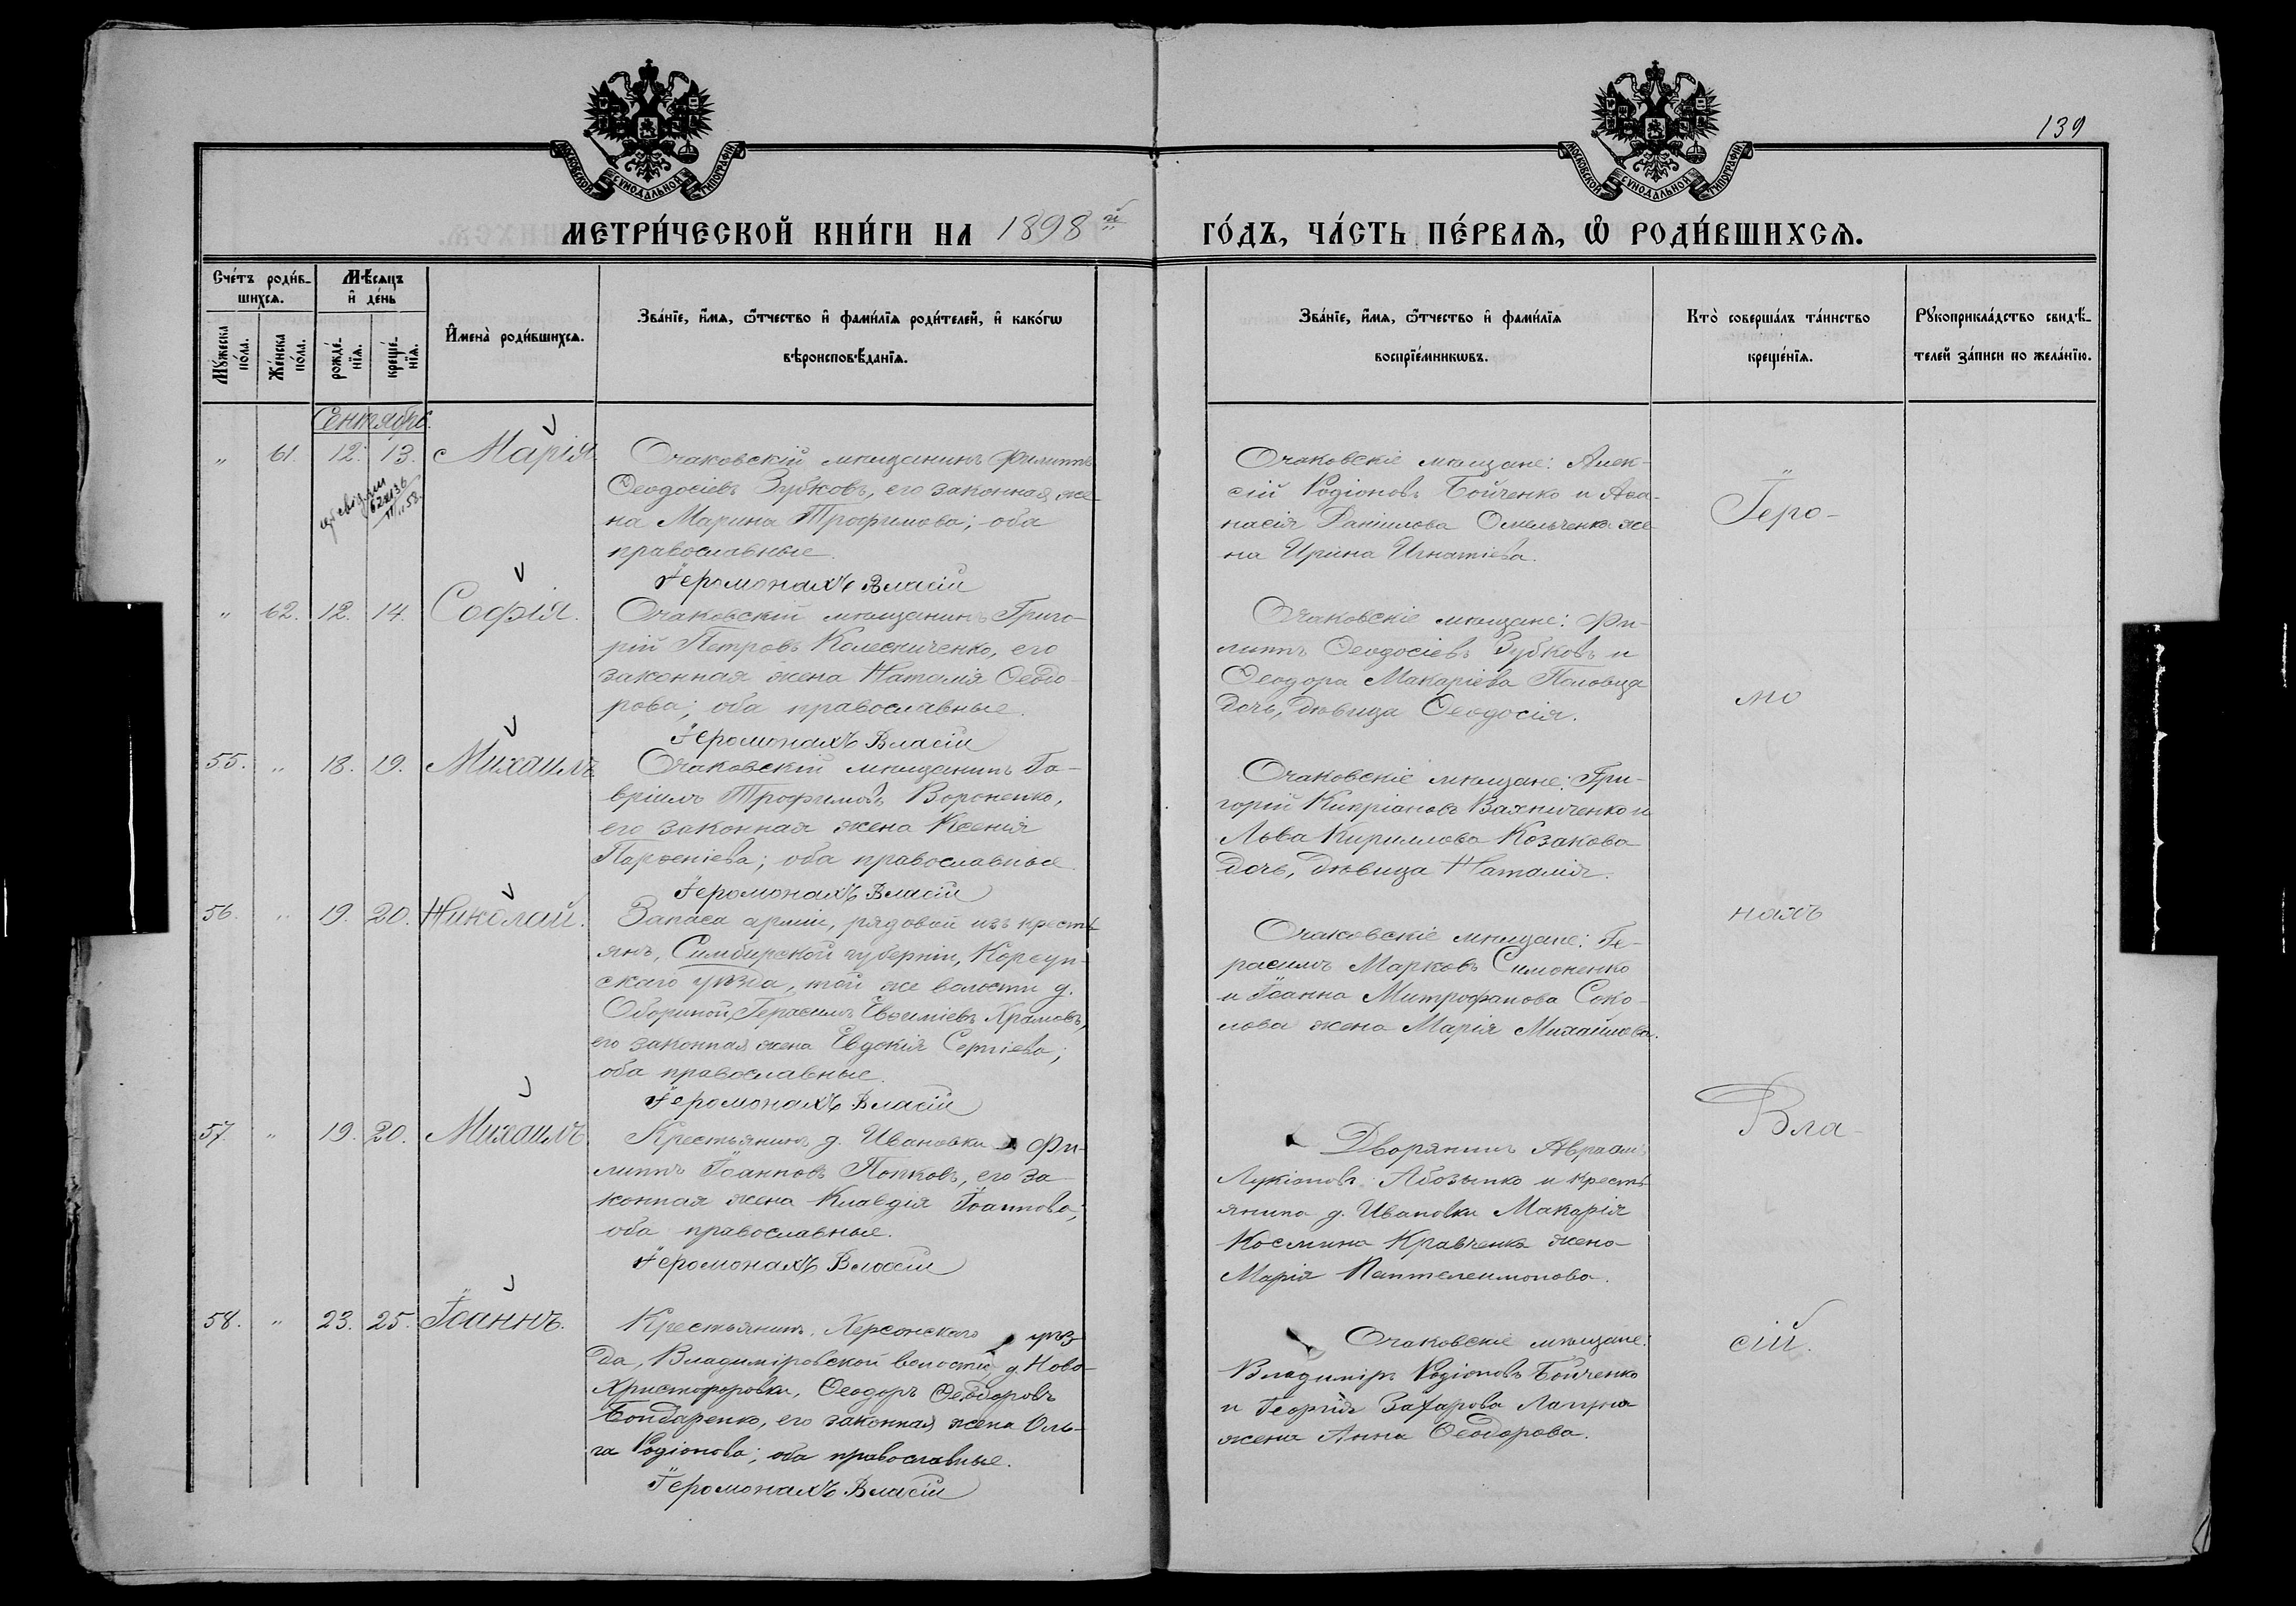 139
МОСКОВСКОЙ СѴНОДАЛЬНОЙ ТИПОГРАФІИ
МОСКОВСКОЙ СѴНОДАЛЬНОЙ ТИПОГРАФІИ
МЕТРИ́ЧЕСКОЙ КНИ́ГИ НА 1898 й ГО́ДЪ, ЧА́СТЬ ПЕ́РВАѦ, Ѡ҆ РОДИ́ВШИХСѦ.
Сче́тъ роди́в-
шихсѧ.
Мꙋ́жеска
по́ла.
Же́нска
по́ла.
Мѣ́сѧцъ
и҆ де́нь
рожде́-
нїѧ.
креще́-
нїѧ.
И҆мена̀ роди́вшихсѧ.
Зва́нїе, и҆́мѧ, ѻ҆́тчество и҆ фами́лїѧ роди́телей, и҆ како́гѡ
вѣроисповѣ́данїѧ.
Зва́нїе, и҆́мѧ, ѻ҆́тчество и҆ фами́лїѧ
воспрїе́мникѡвъ.
Кто̀ соверша́лъ та́инство
креще́нїѧ.
Рꙋкоприкла́дство свидѣ́-
телей за́писи по жела́нїю.
Сентябрь.
„ 61. 12. 13. Марія.
Очаковскій мѣщанинъ Филиппъ
Ѳеодосіевъ Зубковъ, его законная же-
на Марина Трофимова; оба
православные.
Іеромонахъ Власій
Очаковскіе мѣщане: Алек-
сій Родіоновъ Бойченко и Аѳа-
насія Даніилова Омельченка же-
на Ирина Игнатіева.
„ 62. 12. 14. Софія.
Очаковскій мѣщанинъ Григо-
рій Петровъ Колесниченко, его
законная жена Наталія Ѳеодо-
рова; оба православные.
Іеромонахъ Власій
Очаковскіе мѣщане: Фи-
липпъ Ѳеодосіевъ Зубковъ и
Ѳеодора Макаріева Половца
дочь, дѣвица Ѳеодосія.
55. „ 18. 19. Михаилъ
Очаковскій мѣщанинъ Га-
вріилъ Трофимовъ Вороненко,
его законная жена Ксенія
Парѳеніева; оба православные
Іеромонахъ Власій
Очаковскіе мѣщане: Гри-
горій Кипріановъ Вахниченко и
Льва Кириллова Козакова
дочь, дѣвица Наталія.
56. „ 19. 20. Николай.
Запаса арміи, рядовой изъ кресть-
янъ, Симбирской губерніи, Корсун-
скаго уѣзда, той же волости д.
Обориной, Герасимъ Евѳиміевъ Храмовъ,
его законная жена Евдокія Сергіева;
оба православные.
Іеромонахъ Власій
Очаковскіе мѣщане: Ге-
расимъ Марковъ Симоненко
и Іоанна Митрофанова Соко-
лова жена Марія Михайлова.
57. „ 19. 20. Михаилъ.
Крестьянинъ д. Ивановки Фи-
липпъ Іоанновъ Попковъ, его за-
конная жена Клавдія Іоаннова;
оба православные.
Іеромонахъ Власій
Дворянинъ Авраамъ
Лукіановъ и кресть-
янина д. Ивановки Макарія
Космина Кравченка жена
Марія Пантелеимонова.
58. „ 23. 25. Іоаннъ.
Крестьянинъ, Херсонскаго уѣз-
да, Владиміровской волости, д. Ново-
Христофоровки, Ѳеодоръ Ѳеодоровъ
Бондаренко, его законная жена Оль-
га Родіонова; оба православные.
Іеромонахъ Власій
Очаковскіе мѣщане:
Владиміръ Родіоновъ Бойченко
и Георгія Захарова
жена Анна Ѳеодорова.
Іеро-
мо
нахъ
Вла-
сій.